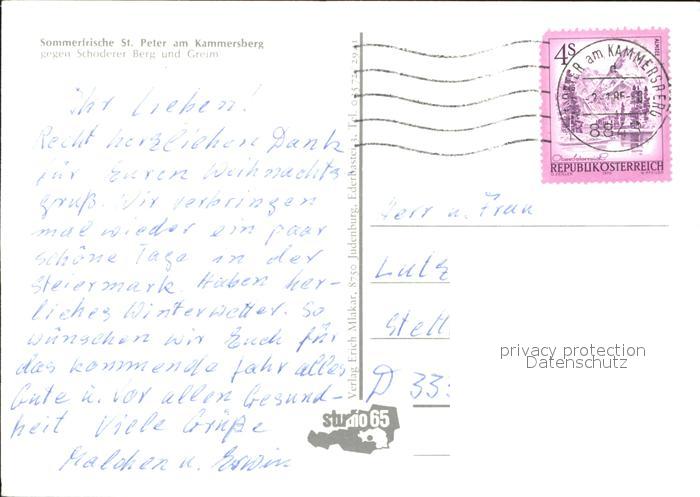 Sommerfrische St. Peter am Kammersberg
gegen Schoderer Berg und Greim
Ihr Lieben!
Recht herzlichen Dank
für Euren Weihnachts
gruß. Wir verbringen
mal wieder ein paar
schöne Tage in der
Steiermark. Haben herr-
liches Winterwetter. So
wünschen wir Euch für
das kommende Jahr alles
Gute u. vor allen Gesund-
heit Viele Grüße
Malchen u. Erwin
Verlag Erich Mlakar, 8750 Judenburg, Ederbastei 3, Tel.
studio 65
4S
PETER am KAMMERSBERG
REPUBLIK ÖSTERREICH
Herr u. Frau
Lutz
Stell
D 33
privacy protection
Datenschutz